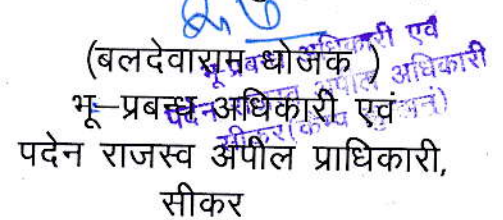 (बलदेवाराम धोजक )
भू–प्रबन्ध अधिकारी एवं
पदेन राजस्व अपील प्राधिकारी,
सीकर
भू प्रबन्ध अधिकारी एवं
पदेन राजस्व अपील अधिकारी
सीकर